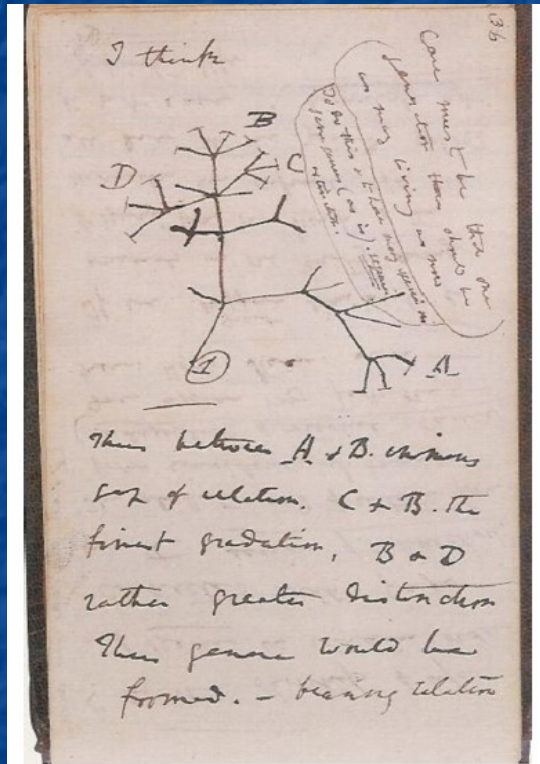 36
I think
Case must be that one
generation then should be
as many living as now
To do this & to have many species in
same genus (as is). requires
extinction.
B
C
D
1
A
Thus between A & B. immense
gap of relation. C & B. the
finest gradation, B & D
rather greater distinction
Thus genera would be
formed. — bearing relation